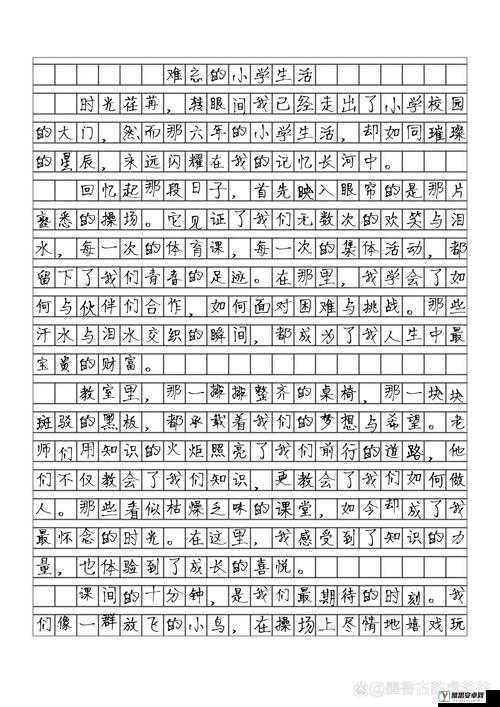 难忘的小学生活
时光荏苒，转眼间我已经走出了小学校园
的大门，然而那六年的小学生活，却如同璀璨
的星辰，永远闪耀在我的记忆长河中。
回忆起那段日子，首先映入眼帘的是那片
熟悉的操场。它见证了我们无数次的欢笑与泪
水，每一次的体育课，每一次的集体活动，都
留下了我们青春的足迹。在那里，我学会了如
何与伙伴们合作，如何面对困难与挑战。那些
汗水与泪水交织的瞬间，都成为了我人生中最
宝贵的财富。
教室里，那一排排整齐的桌椅，那一块块
斑驳的黑板，都承载着我们的梦想与希望。老
师们用知识的火炬照亮了我们前行的道路，他
们不仅教会了我们知识，更教会了我们如何做
人。那些看似枯燥乏味的课堂，如今却成了我
最怀念的时光。在这里，我感受到了知识的力
量，也体验到了成长的喜悦。
课间的十分钟，是我们最期待的时刻。我
们像一群放飞的小鸟，在操场上尽情地嬉戏玩